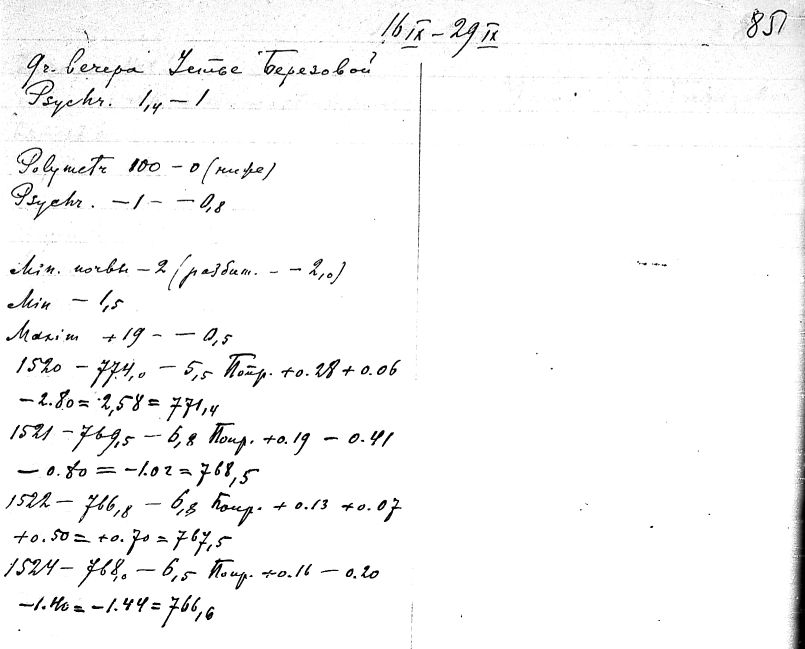 16 IX – 29 IX
85
9 г. вечера Устье Березовой
Psychr. 1,4 – 1
Polymetr 100 – 0 (ниже)
Psychr. – 1 – – 0,8
Min. почвы – 2 (разбит. – – 2,0)
Min – 1,5
Maxim +19 – – 0,5
1520 – 774,0 – 5,5 Попр. +0.28 +0.06
– 2.80 = 2,58 = 771,4
1521 – 769,5 – 6,8 Попр. +0.19 – 0.41
– 0.80 = –1.02 = 768,5
1522 – 766,8 – 6,8 Попр. +0.13 +0.07
+0.50 = +0.70 = 767,5
1524 – 768,0 – 6,5 Попр. +0.16 – 0.20
–1.40 = –1.44 = 766,6